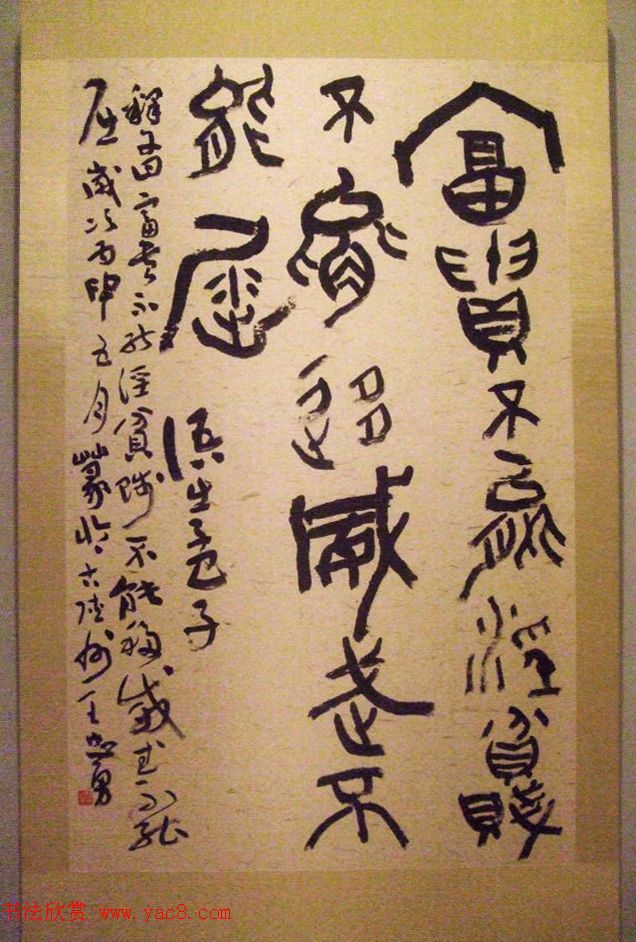 富貴不能淫貧賤
不能迻威武不
能屈 語出孟子
釋文曰富貴不能淫貧賤不能移威武不能
屈歲次丙申五月篆於古陸州王勇
书法欣赏 www.yac8.com